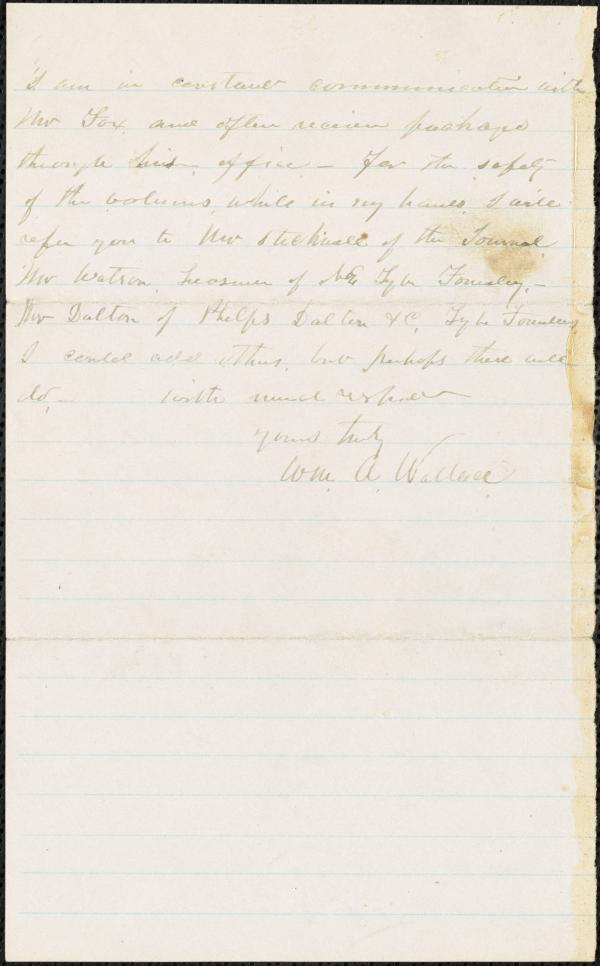 I am in constant communication with
Mr Fox and often receive packages
through his office — For the safety
of the volumes, while in my hands, I will
refer you to Mr Stockwell of the Journal,
Mr Watson, Treasurer of NE Type Foundry, —
Mr Dalton of Phelps Dalton & C, Type Foundry,
I could add others, but perhaps these will
do, — With much respect
yours truly
Wm. A. Wallace